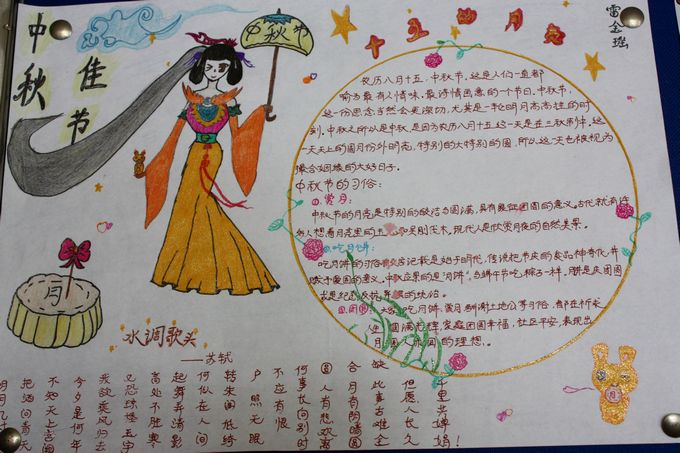 中秋佳节
中秋节
十五的月亮
雷金瑶
农历八月十五,中秋节,这是人们一直都
喻为最有人情味、最诗情画意的一个节日,中秋节,
这一份思念当然会更深切,尤其是一轮明月高高挂的时
刻。中秋之所以是中秋,是因为农历八月十五这一天是在三秋
一天天上的圆月份外明亮,特别的大特别的圆,所以这一天也被视为
撮合姻缘的大好日子。
中秋节的习俗:
①赏月:
中秋节的月亮是特别的皎洁与圆满,具有象征团圆的意义。古代就有许
多人想看月亮里的 和吴刚伐木,现代人是欣赏月夜的自然美景。
②吃月饼:
吃月饼的习俗 记载是始于明代,传说把节庆的食品神奇化,并
赋予爱国的意义。中秋应景的是"月饼",与端午节吃粽子一样,
③团圆: 吃月饼、赏月、 谢土地公等习俗,都在祈求
人 圆满光辉,家庭团圆幸福,社区平安,表现出
月圆人亦圆的理想。
水调歌头
——苏轼
明月几时
把酒问青天
不知天上宫阙
今夕是何年
我欲乘风归去
又恐琼楼玉宇
高处不胜寒
起舞弄清影
何似在人间
转朱阁低绮
户照无眠
不应有恨
何事长向别时
圆人有悲欢离
合月有阴晴圆
缺此事古难全
但愿人长久
千里共婵娟!
月
月